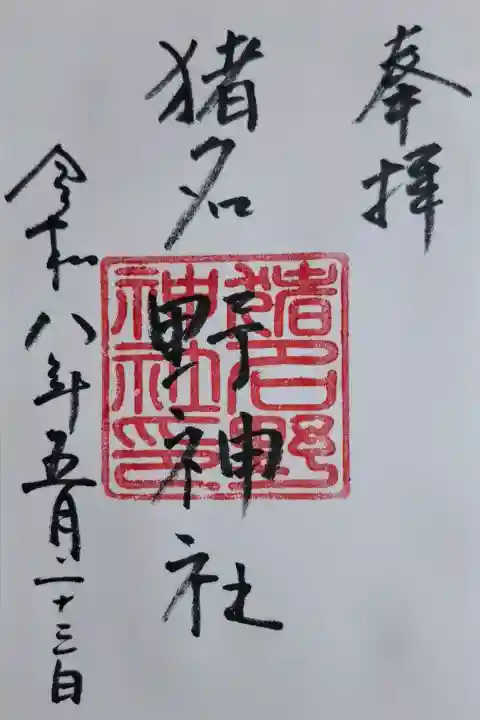 奉拝
猪名野神社
猪名野
神社印
令和八年五月二十三日